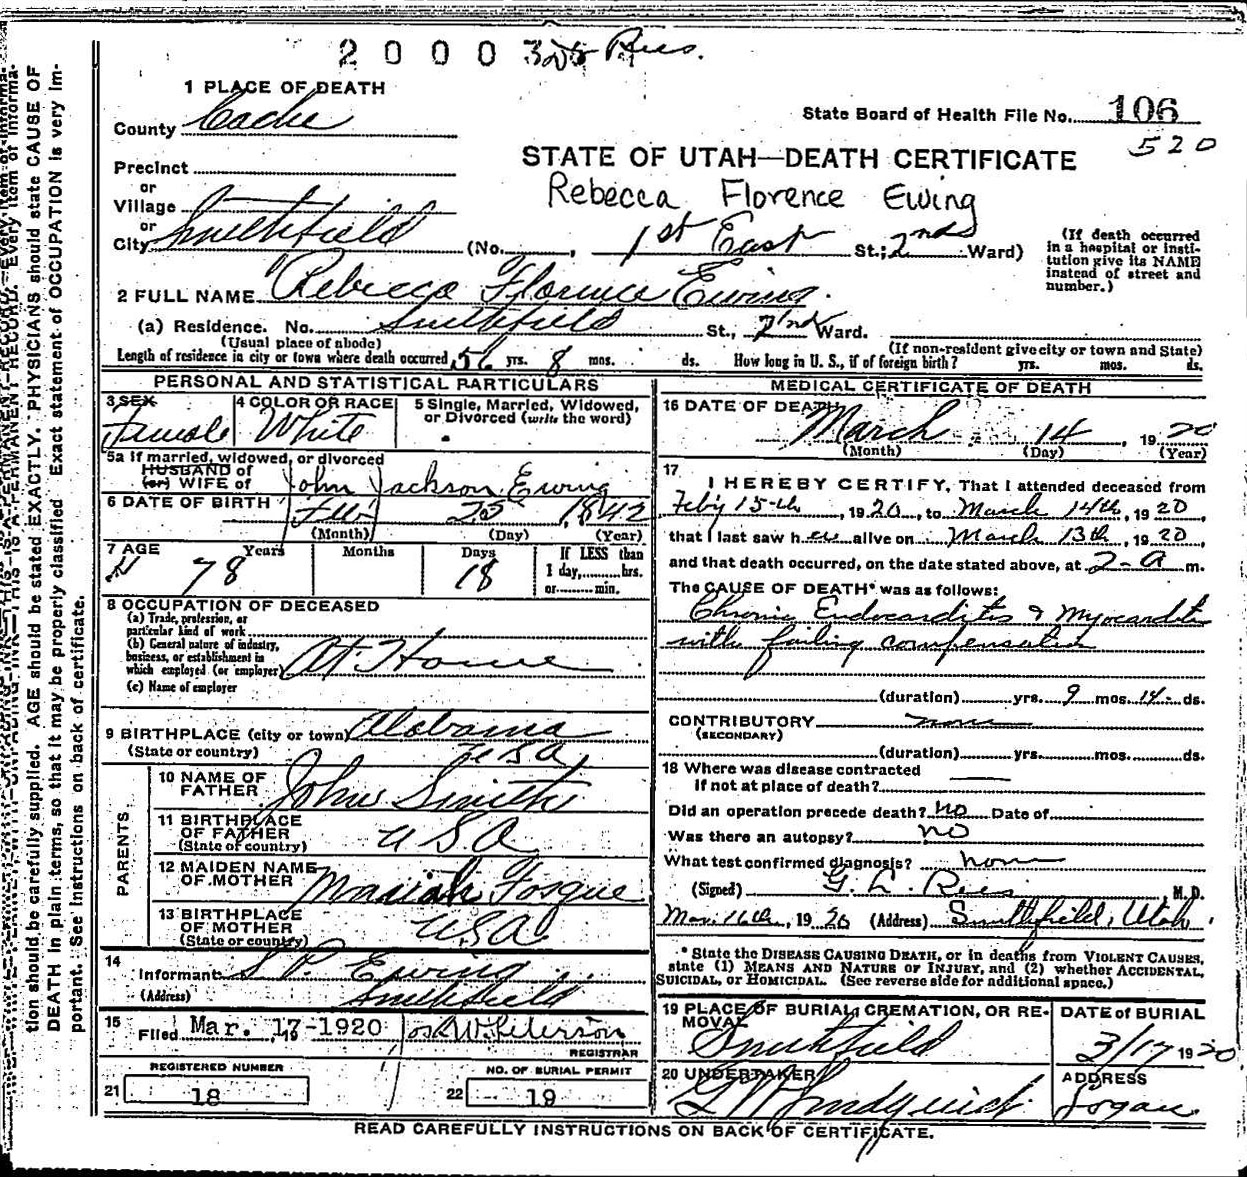 2 0 0 0 3
Rees.
1 PLACE OF DEATH
County Cache
State Board of Health File No. 106
520
Precinct
STATE OF UTAH—DEATH CERTIFICATE
or
Village
Rebecca Florence Ewing
or
City Smithfield (No. , 1st East St.; 2nd Ward)
(If death occurred
in a hospital or insti-
tution give its NAME
instead of street and
number.)
2 FULL NAME Rebecca Florence Ewing.
(a) Residence. No. Smithfield St., 2nd Ward.
(Usual place of abode) (If non-resident give city or town and State)
Length of residence in city or town where death occurred 56 yrs. 8 mos. ds. How long in U. S., if of foreign birth? yrs. mos. ds.
PERSONAL AND STATISTICAL PARTICULARS
3 SEX
Female
4 COLOR OR RACE
White
5 Single, Married, Widowed,
or Divorced (write the word)
5a If married, widowed, or divorced
HUSBAND of
(or) WIFE of John Jackson Ewing
6 DATE OF BIRTH Feb 25, 1842
(Month) (Day) (Year)
7 AGE Years Months Days
78 18
If LESS than
1 day,........hrs.
or.........min.
8 OCCUPATION OF DECEASED
(a) Trade, profession, or
particular kind of work
(b) General nature of industry,
business, or establishment in
which employed (or employer) At Home
(c) Name of employer
9 BIRTHPLACE (city or town) Alabama
(State or country) USA
PARENTS
10 NAME OF
FATHER John Smith
11 BIRTHPLACE
OF FATHER
(State of country) USA
12 MAIDEN NAME
OF MOTHER Mariah Forgue
13 BIRTHPLACE
OF MOTHER
(State or country) USA
14
Informant S P. Ewing
(Address) Smithfield
15
Filed Mar. 17-1920, 19
REGISTRAR
REGISTERED NUMBER
21 18
NO. OF BURIAL PERMIT
22 19
MEDICAL CERTIFICATE OF DEATH
16 DATE OF DEATH
March 14, 1920
(Month) (Day) (Year)
17
I HEREBY CERTIFY, That I attended deceased from
Feb'y 15-th, 1920, to March 14th, 1920,
that I last saw her alive on March 13th, 1920,
and that death occurred, on the date stated above, at 2-a m.
The CAUSE OF DEATH* was as follows:
Chronic Endocarditis & Myocarditis
with failing compensation
(duration) yrs. 9 mos. 14 ds.
CONTRIBUTORY none
(SECONDARY)
(duration) yrs. mos. ds.
18 Where was disease contracted
if not at place of death?
Did an operation precede death? no Date of
Was there an autopsy? no
What test confirmed diagnosis? none
(Signed) G. L. Rees, M.D.
Mar. 16th, 1920 (Address) Smithfield, Utah.
* State the DISEASE CAUSING DEATH, or in deaths from VIOLENT CAUSES,
state (1) MEANS AND NATURE OF INJURY, and (2) whether ACCIDENTAL,
SUICIDAL, or HOMICIDAL. (See reverse side for additional space.)
19 PLACE OF BURIAL, CREMATION, OR RE-
MOVAL
Smithfield
DATE OF BURIAL
3/17 1920
20 UNDERTAKER
G W Lindquist
ADDRESS
Logan
READ CAREFULLY INSTRUCTIONS ON BACK OF CERTIFICATE.
tion should be carefully supplied. AGE should be stated EXACTLY. PHYSICIANS should state CAUSE OF
DEATH in plain terms, so that it may be properly classified. Exact statement of OCCUPATION is very im-
portant. See instructions on back of certificate.